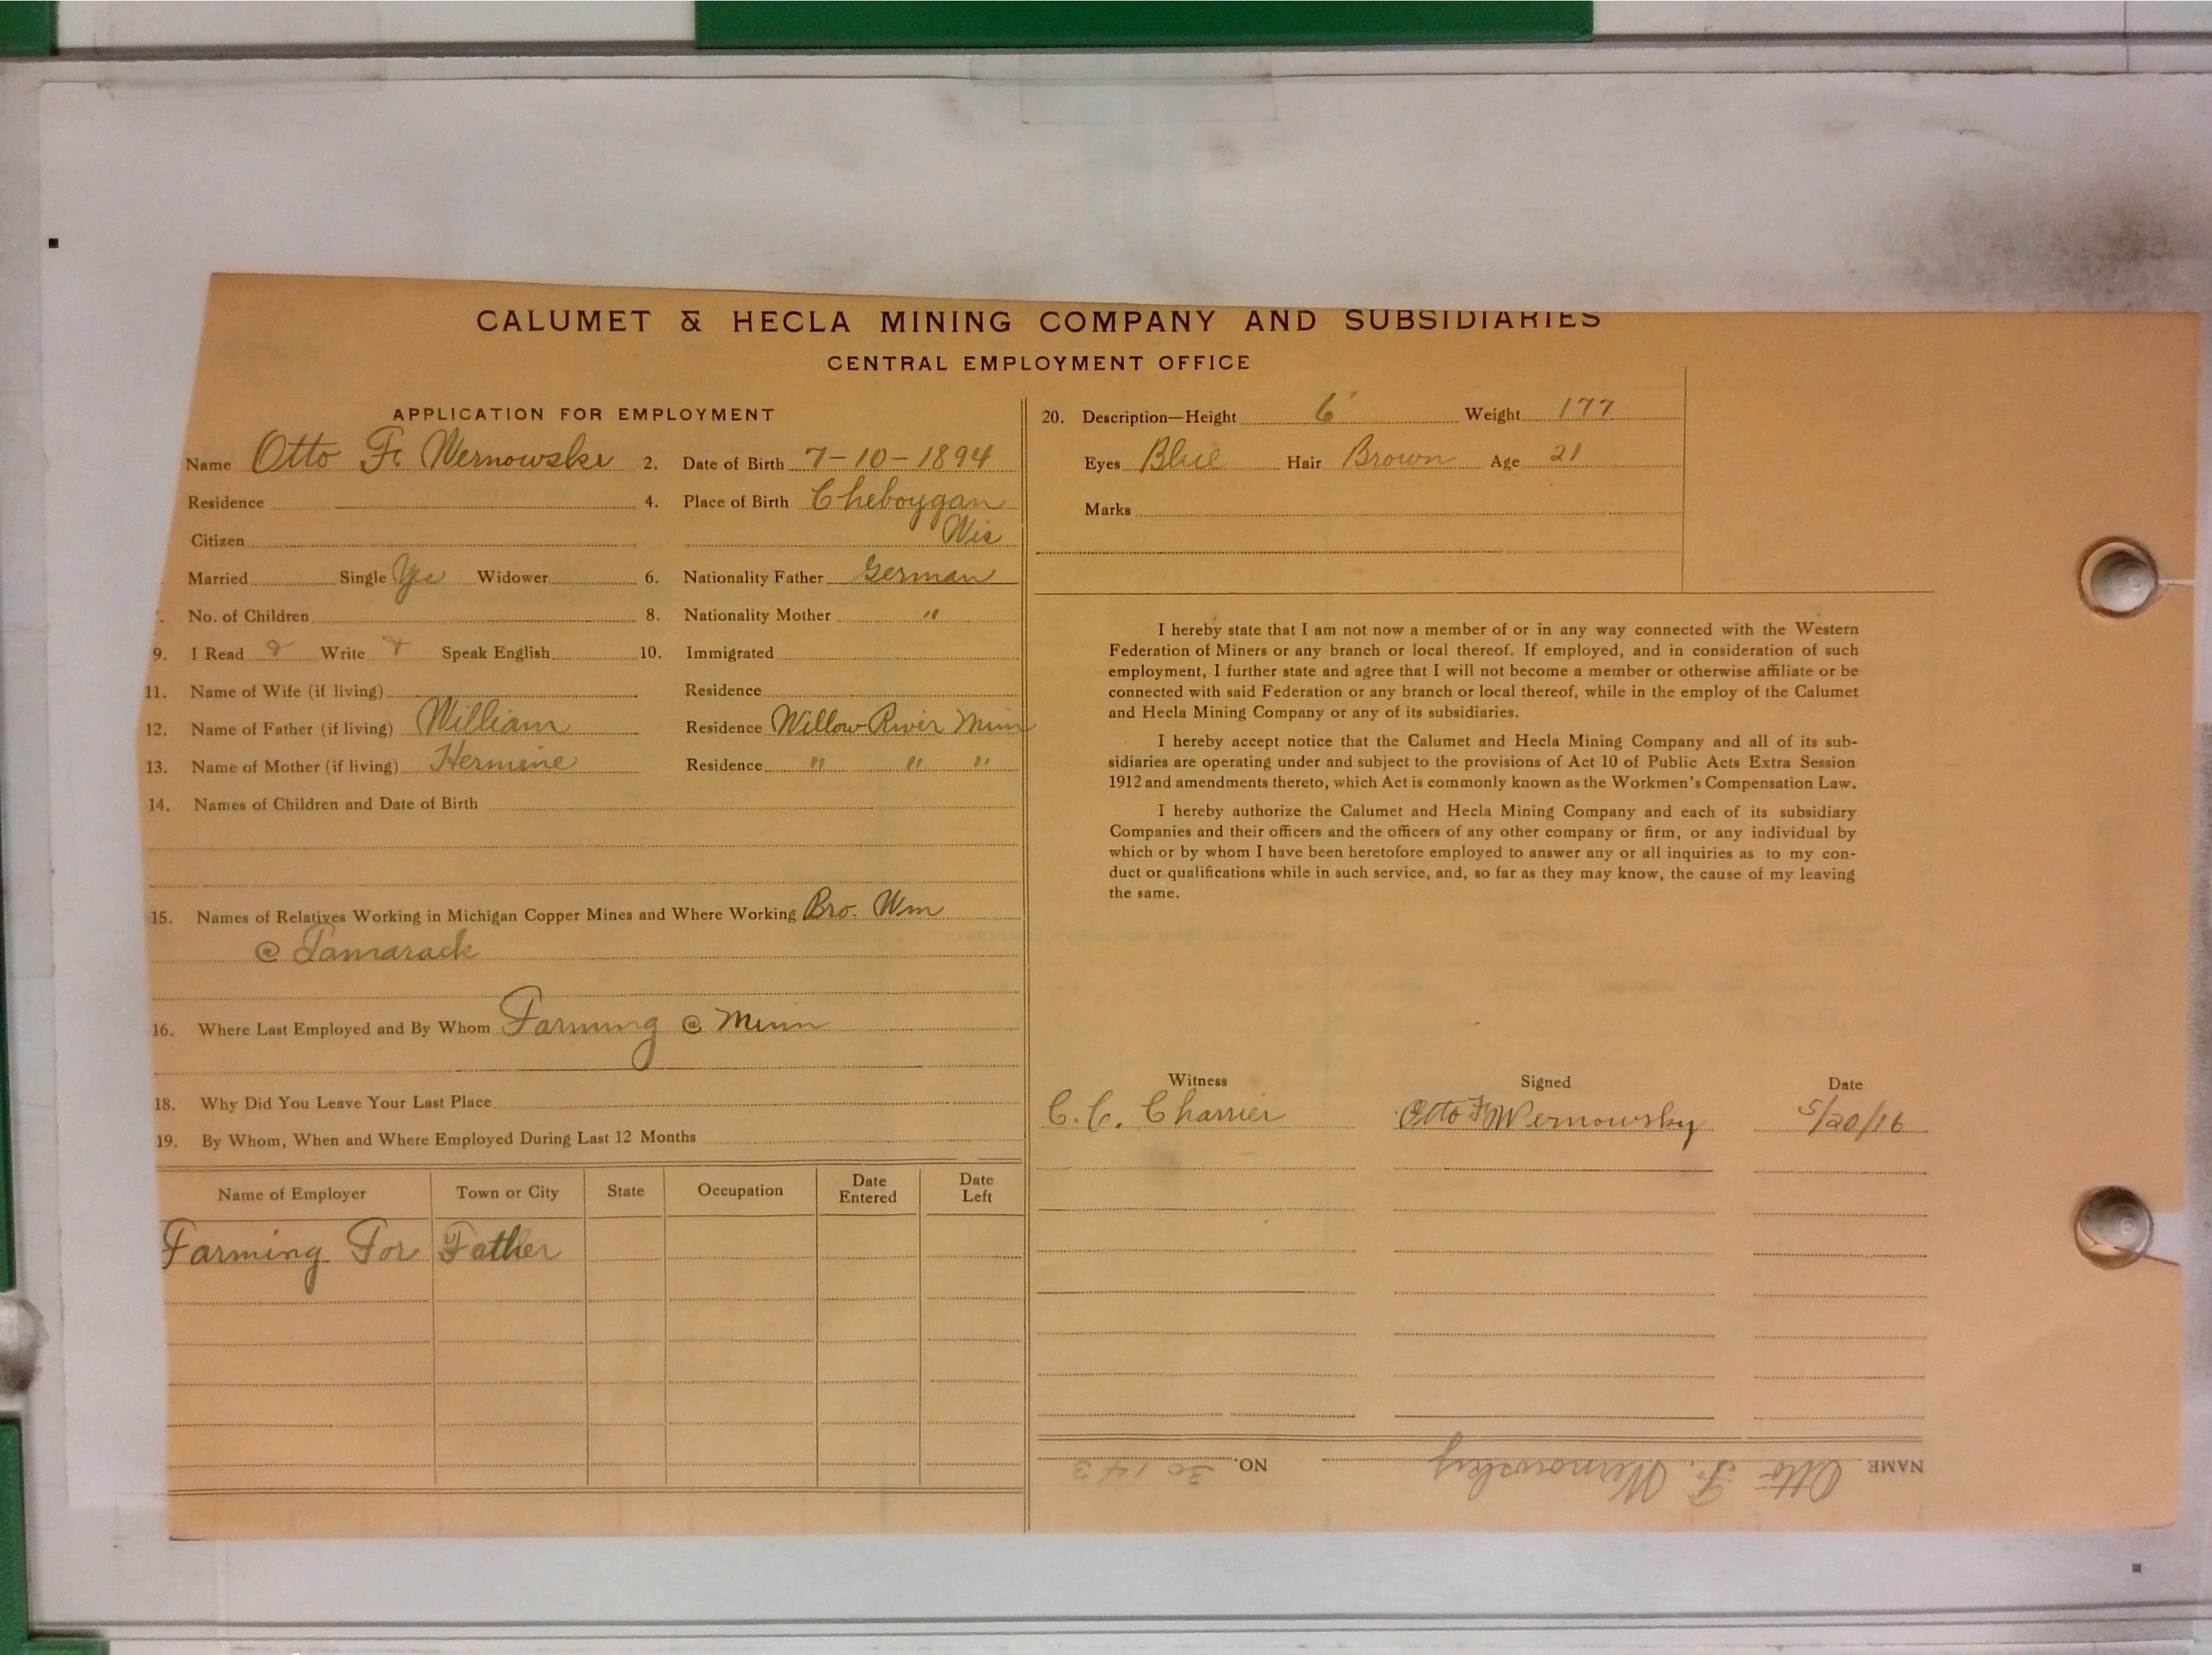 CALUMET & HECLA MINING COMPANY AND SUBSIDIARIES
CENTRAL EMPLOYMENT OFFICE
APPLICATION FOR EMPLOYMENT
Name Otto F. Wernowski 2. Date of Birth 7-10-1894
Residence 4. Place of Birth Cheboygan
Citizen Wis
Married Single Yes Widower 6. Nationality Father German
No. of Children 8. Nationality Mother "
9. I Read Write Speak English 10. Immigrated
11. Name of Wife (if living) Residence
12. Name of Father (if living) William Residence Willow River Minn
13. Name of Mother (if living) Hermine Residence " " "
14. Names of Children and Date of Birth
15. Names of Relatives Working in Michigan Copper Mines and Where Working Bro. Wm
@ Tamarack
16. Where Last Employed and By Whom Farming @ Minn
18. Why Did You Leave Your Last Place
19. By Whom, When and Where Employed During Last 12 Months
Name of Employer Town or City State Occupation Date Entered Date Left
Farming For Father
20. Description—Height 6' Weight 177
Eyes Blue Hair Brown Age 21
Marks
I hereby state that I am not now a member of or in any way connected with the Western
Federation of Miners or any branch or local thereof. If employed, and in consideration of such
employment, I further state and agree that I will not become a member or otherwise affiliate or be
connected with said Federation or any branch or local thereof, while in the employ of the Calumet
and Hecla Mining Company or any of its subsidiaries.
I hereby accept notice that the Calumet and Hecla Mining Company and all of its sub-
sidiaries are operating under and subject to the provisions of Act 10 of Public Acts Extra Session
1912 and amendments thereto, which Act is commonly known as the Workmen's Compensation Law.
I hereby authorize the Calumet and Hecla Mining Company and each of its subsidiary
Companies and their officers and the officers of any other company or firm, or any individual by
which or by whom I have been heretofore employed to answer any or all inquiries as to my con-
duct or qualifications while in such service, and, so far as they may know, the cause of my leaving
the same.
Witness Signed Date
C. C. Charrier Otto F Wernowsky 5/20/16
NAME Otto F. Wernowsky NO. 30143